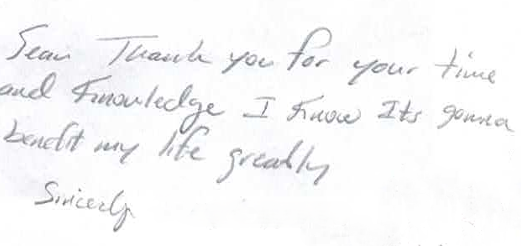 Sean Thank you for your time
and Knowledge I Know Its gonna
benefit my life greatly
Sincerly